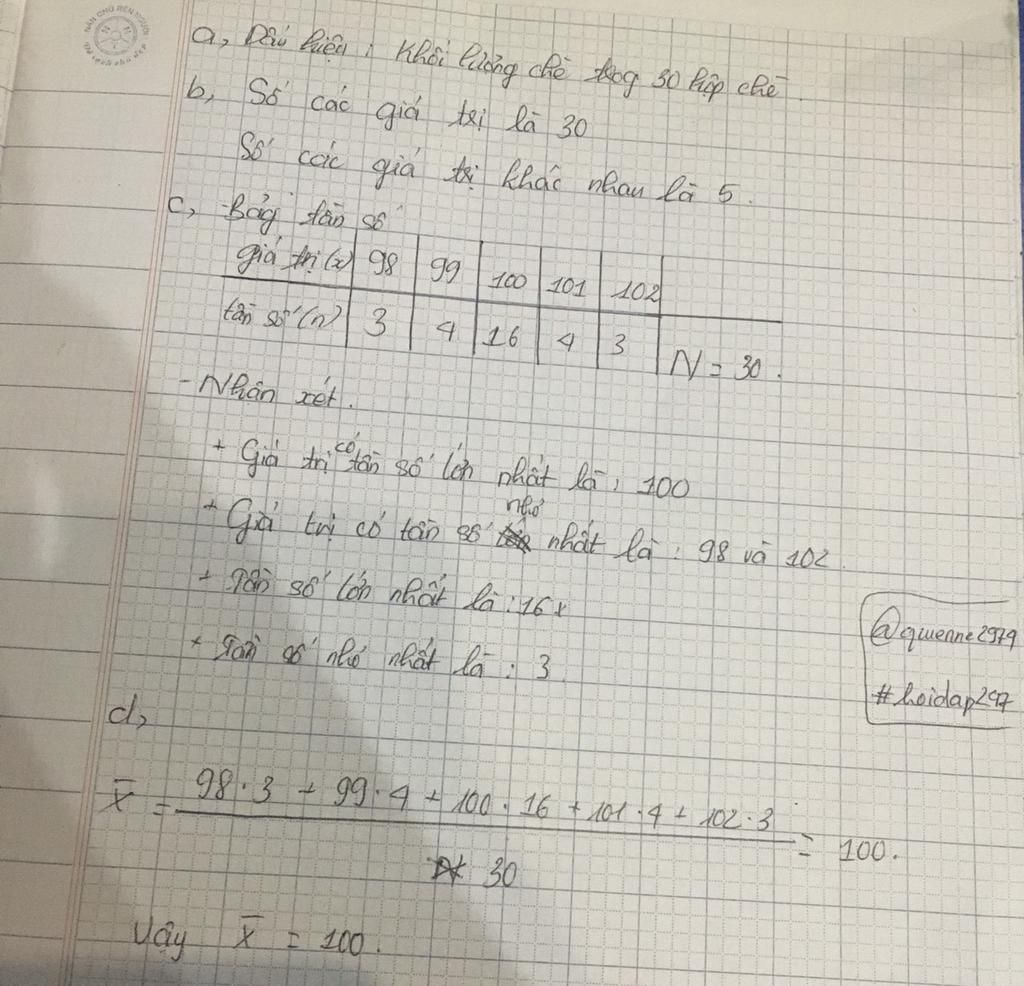 a, Dấu hiệu : Khối lượng chè trog 30 hộp chè.
b, Số các giá trị là 30
Số các giá trị khác nhau là 5.
c, Bảg tần số
giá trị (x) 98 99 100 101 102
tần số (n) 3 4 16 4 3 N = 30.
- Nhận xét.
+ Giá trị có tần số lớn nhất là : 100
+ Giá trị có tần số nhỏ nhất là : 98 và 102.
+ Tần số lớn nhất là : 16
+ Tần số nhỏ nhất là : 3.
@quenne2979
#hoidap247
d,
X̄ = 98·3 + 99·4 + 100·16 + 101·4 + 102·3 = 100.
30
Vậy X̄ = 100.